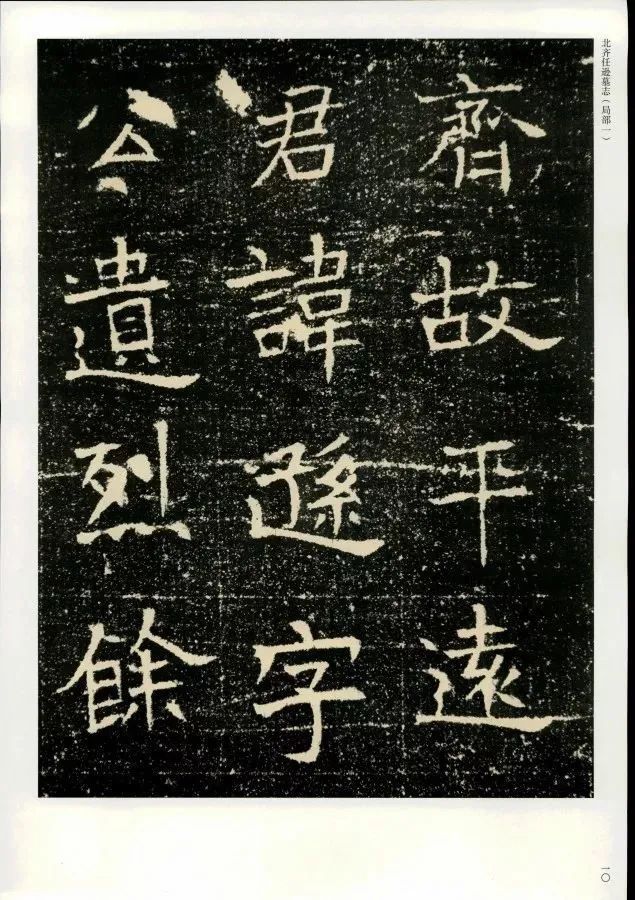 北齐任逊墓志（局部一）
齊故平遠
君諱遜字
公遺烈餘
一〇